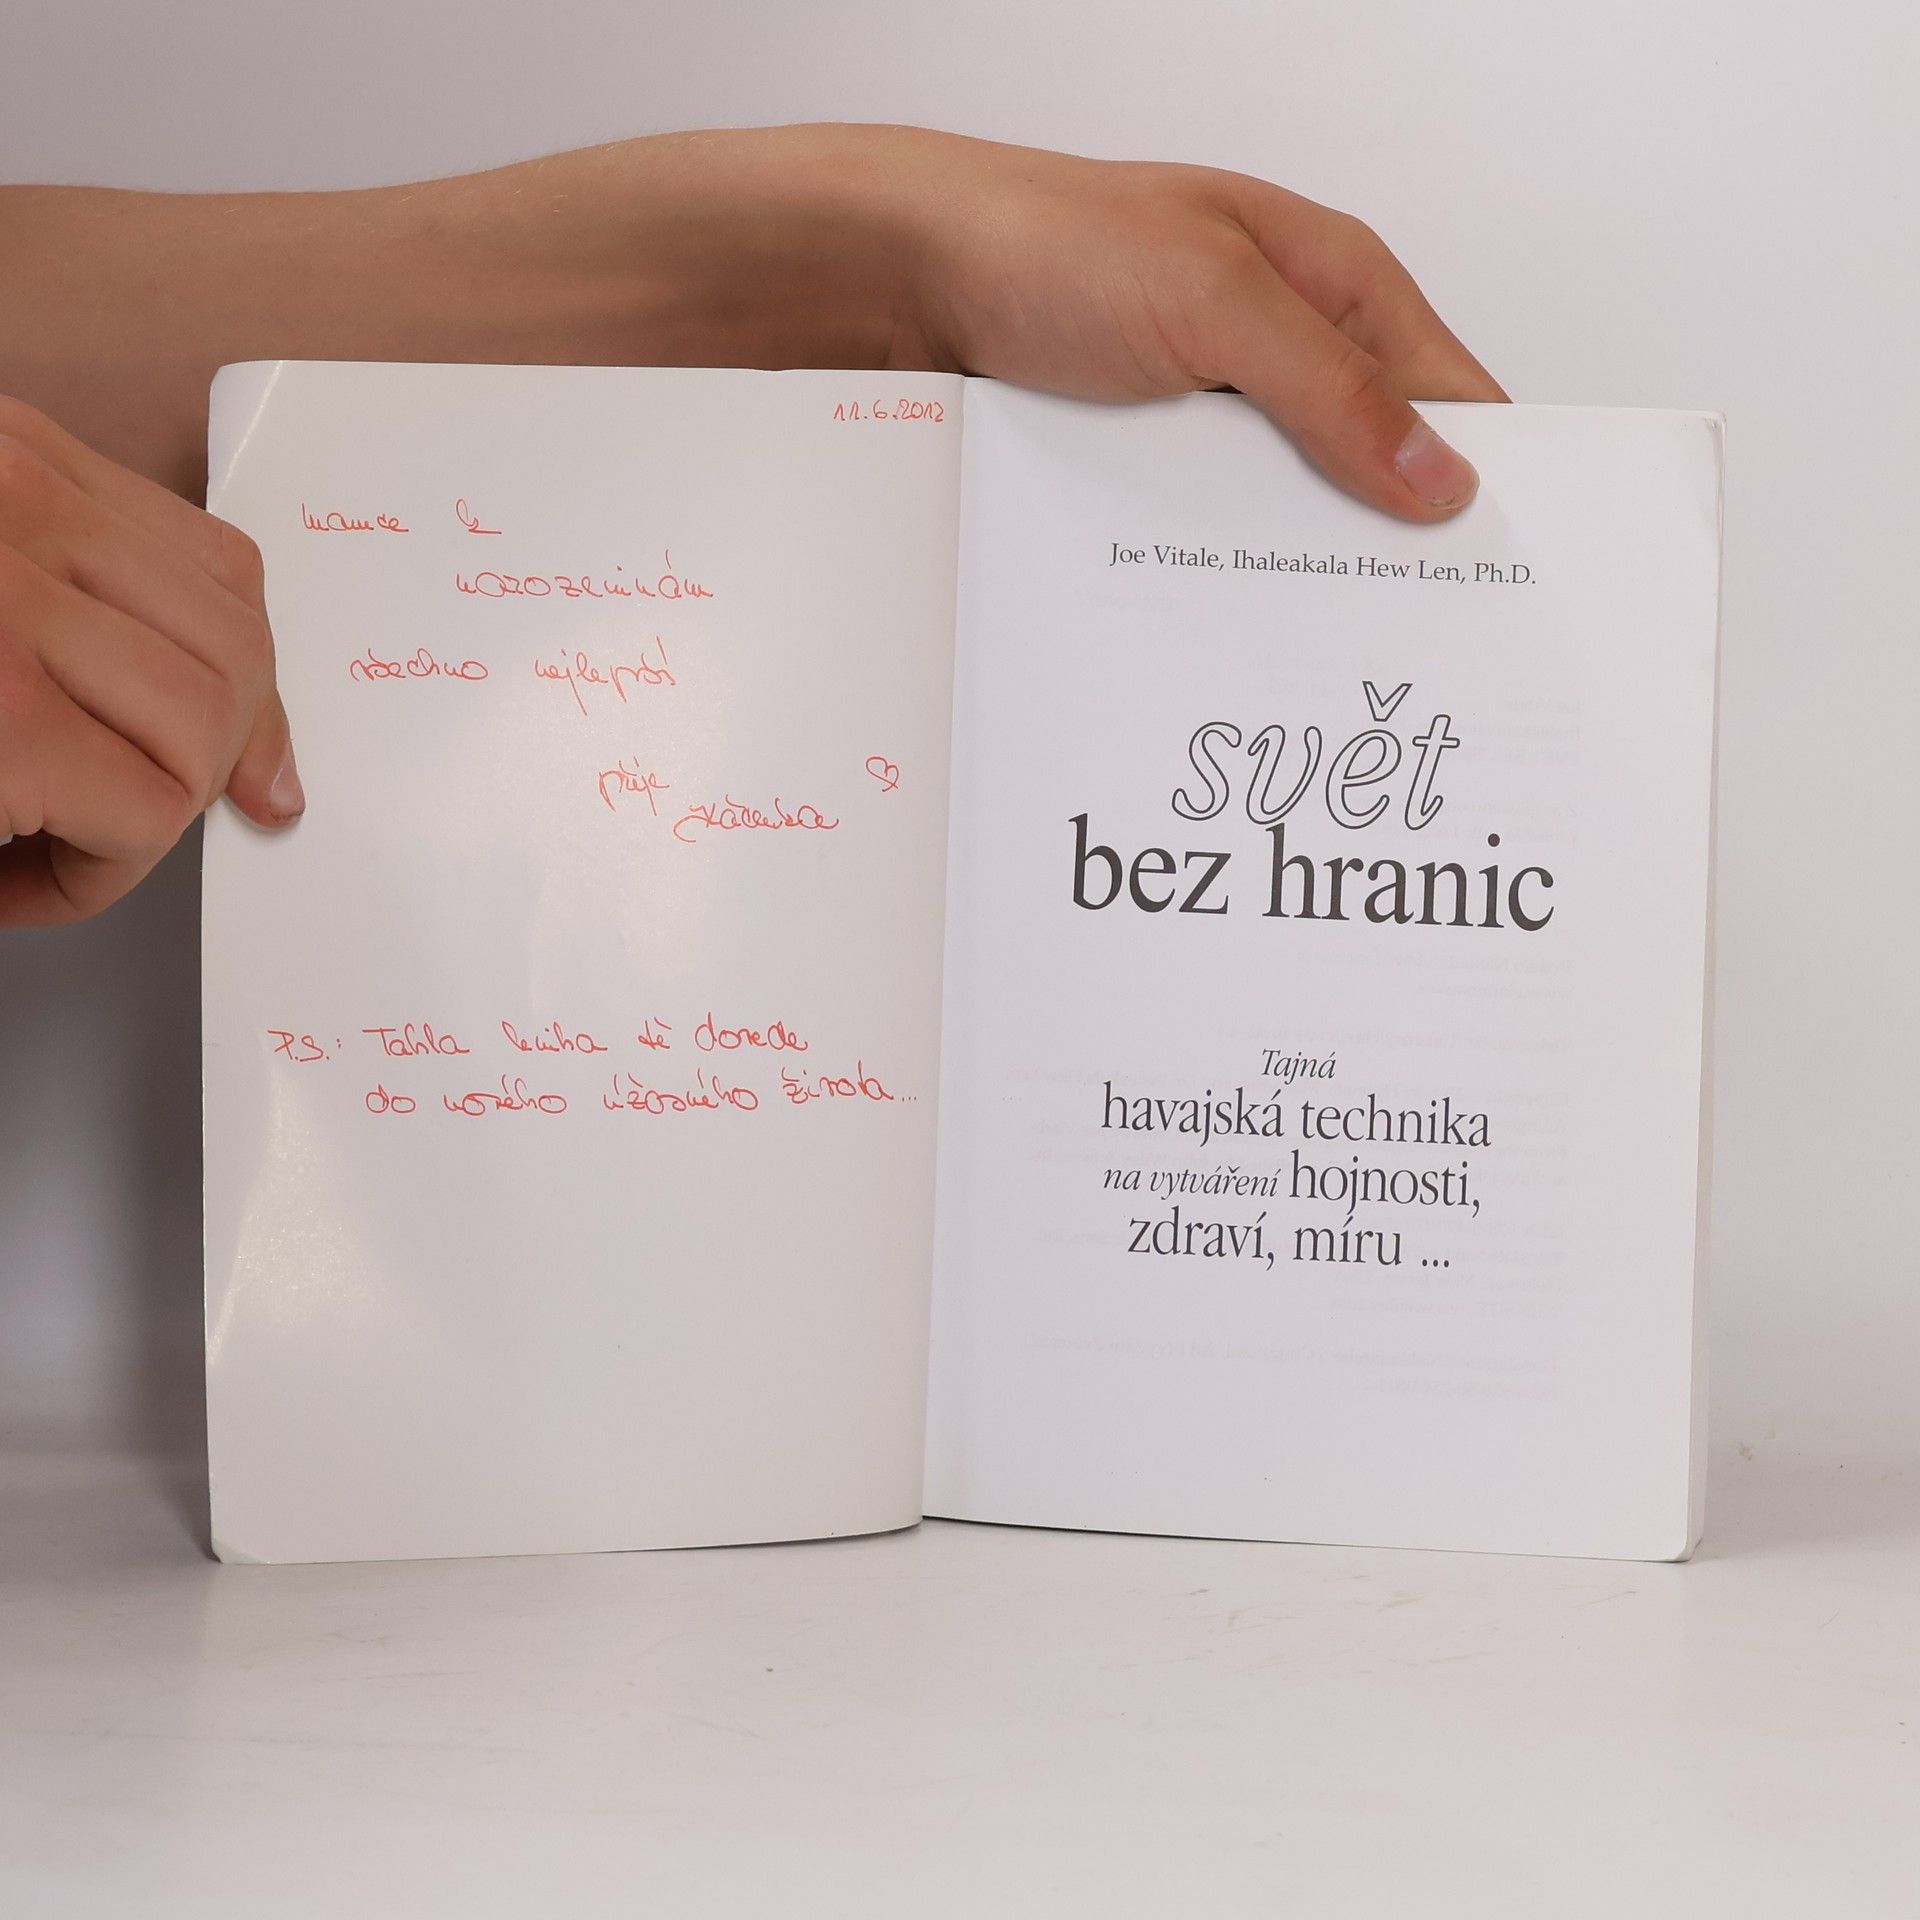 11.6.2012
mamce k
narozeninám
všechno nejlepší
přeje
Káčenka
P.S.: Tahla kniha tě dovede
do nového úžasného života...
Joe Vitale, Ihaleakala Hew Len, Ph.D.
svět
bez hranic
Tajná
havajská technika
na vytváření hojnosti,
zdraví, míru ...